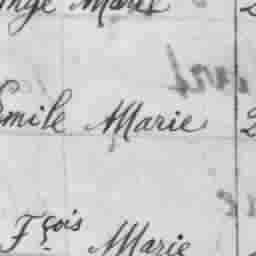 Marie
Emile Marie
Fçois Marie